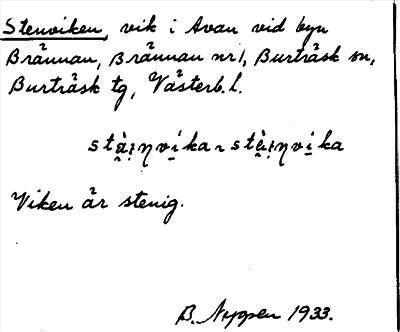 Stenviken, vik i Avan vid byn
Brännan, Brännan nr 1, Burträsk sn,
Burträsk tg, Västerb. l.
Viken är stenig.
B. Nyppen 1933.